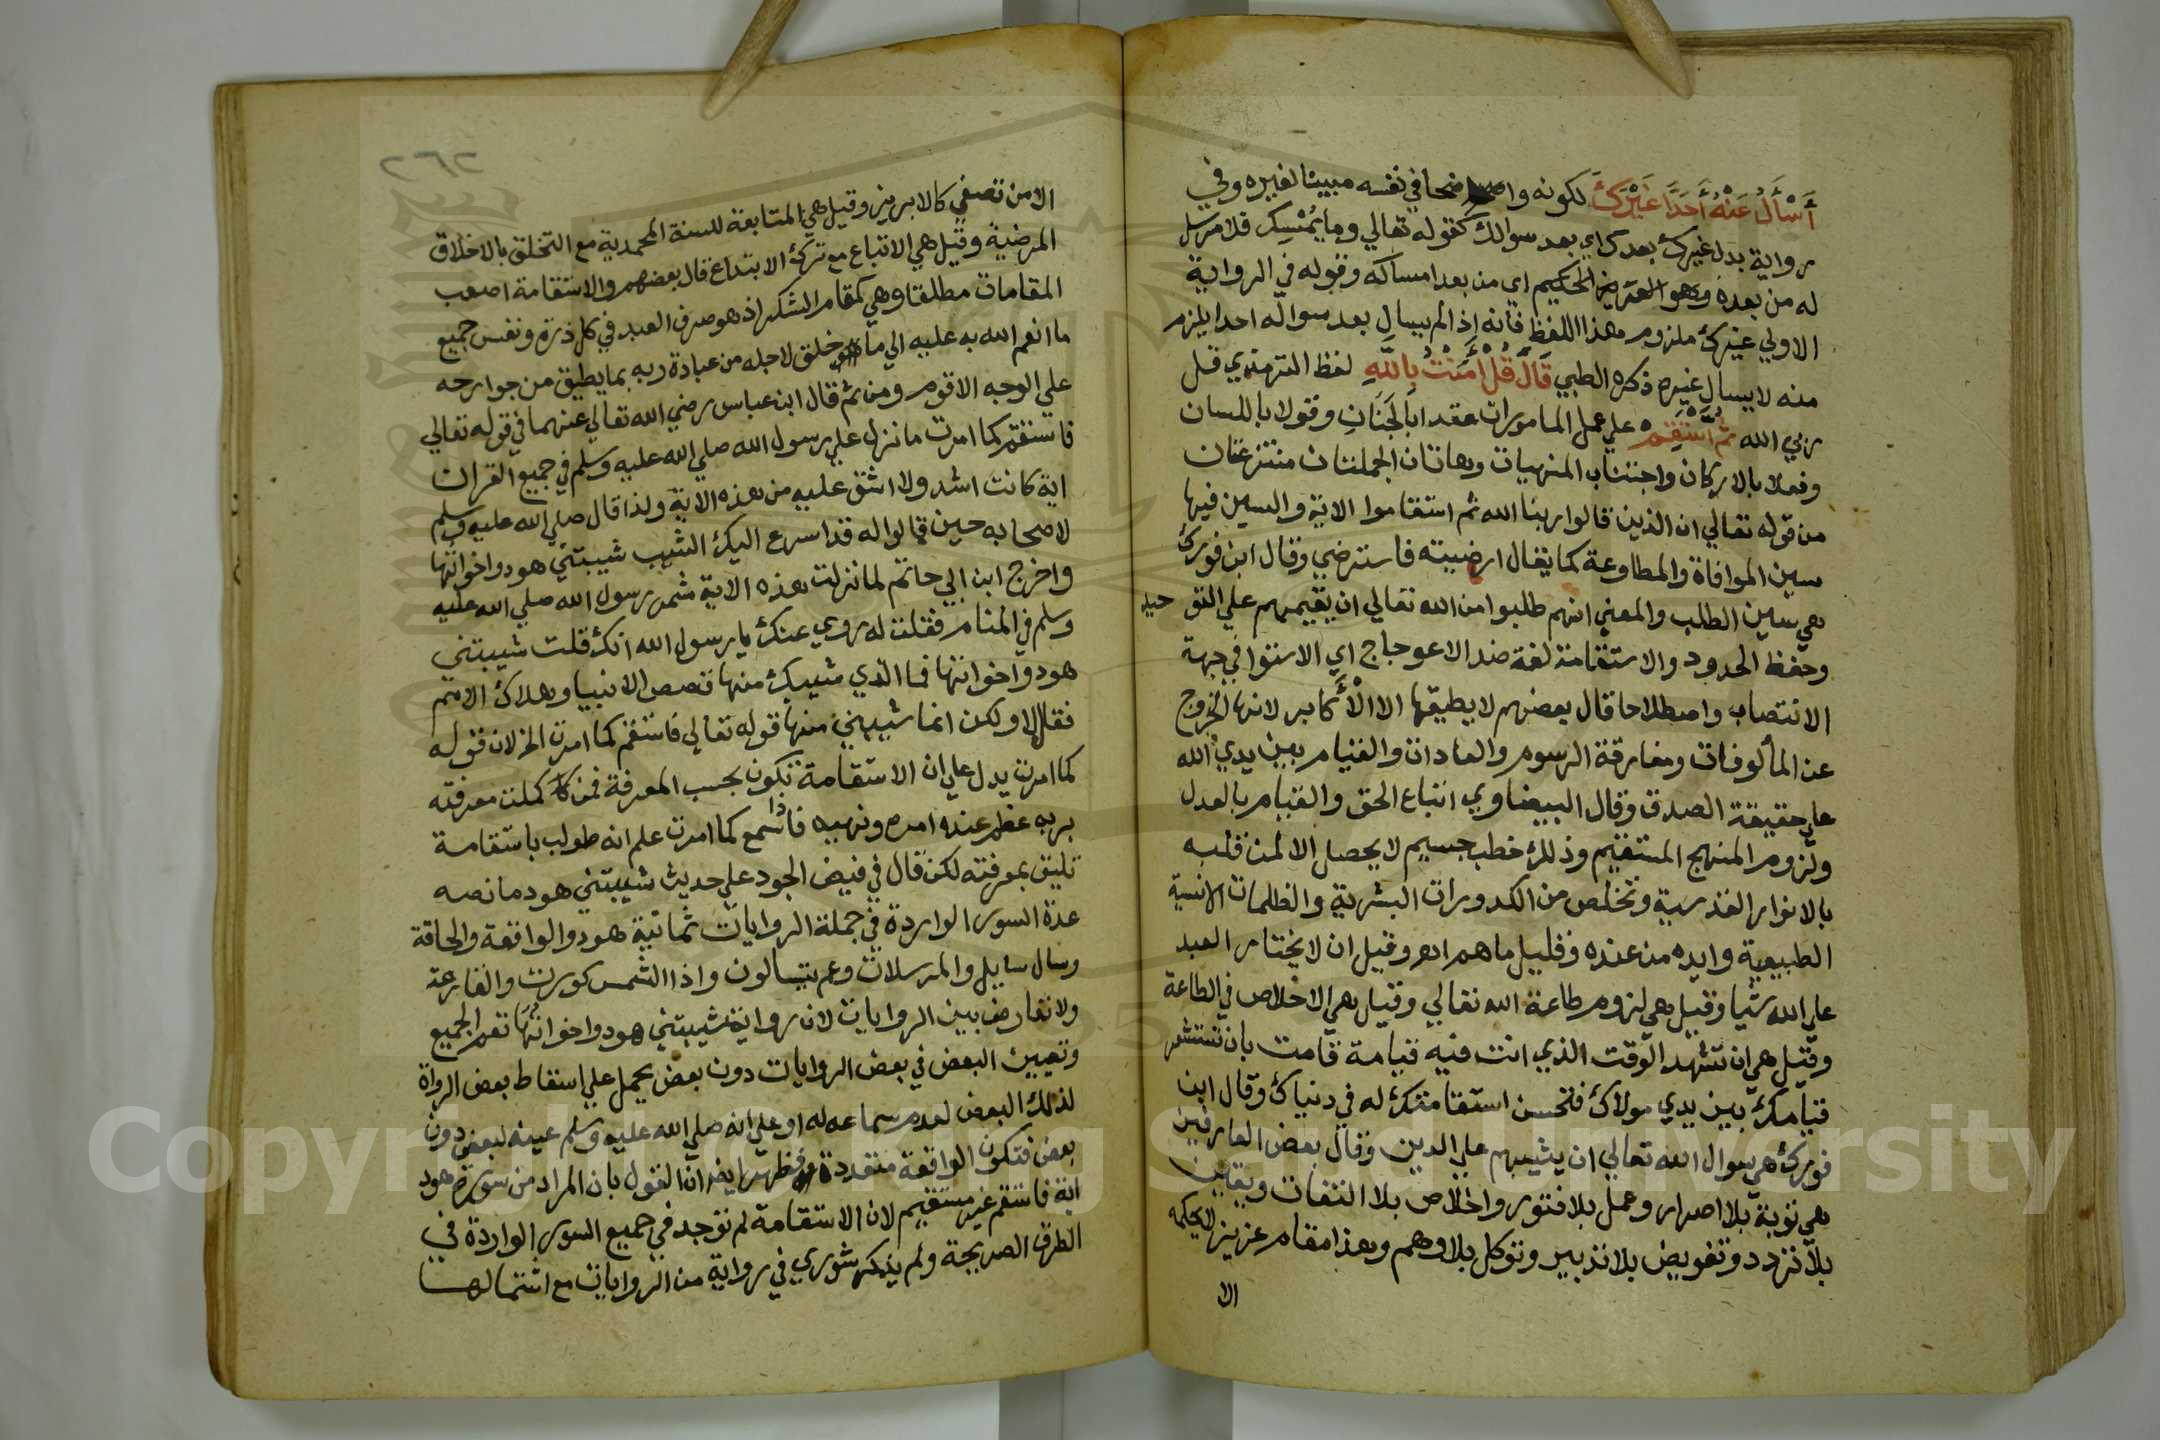 أَسْأَلُ عَنْهُ أَحَدًا غَيْرَكَ لكونه واضحا في نفسه مبينا لغيره وفي
رواية بدل غيرك بعدك اي بعد سوالك كقوله تعالي وما يُمْسِك فلا مرسل
له من بعده وهو العزيز الحكيم اي من بعد امساكه وقوله في الرواية
الاولي غيرك ملزوم هذا اللفظ فانه إذ الم يسال بعد سواله احدا يلزم
منه لا يسال غيره ذكره الطبي قَالَ قُلْ أَمَنْتُ بِاللَّهِ لفظ الترمذي قل
ربي الله ثُمَّ اسْتَقِمْ علي عمل المامورات عقدا بَالجَنَانِ وقولا باللسان
وفعلا بالاركان واجتناب المنهيات وهاتان الجملتان منتزعتان
من قوله تعالي ان الذين قالوا ربنا الله ثم استقاموا الاية والسين فيها
سين الموافاة والمطاوعة كما يقال ارضيته فاسترضي وقال ابن فورك
هي سين الطلب والمعني انهم طلبوا من الله تعالي ان يقيمهم علي التو حيد
وحفظ الحدود والاستقامة لغة ضد الاعوجاج اي الاستوا في جهة
الانتصاب واصطلاحا قال بعضهم لا يطيقها الا الْأَكابر لانها الخروج
عن المألوفات ومفارقة الرسوم والعادات والقيام بين يدي الله
علي حقيقة الصدق وقال البيضاوي اتباع الحق والقيام بالعدل
ولزوم المنهج المستقيم وذلك خطب جسيم لا يحصل الا لمن قلبه
بالانوار القدسية وتخلص من الكدورات البشرية والظلمات الانسية
الطبيعية وايده من عنده وقليل ما هم اه وقيل ان لا يختار العبد
علي الله شيا وقيل هي لزوم طاعة الله تعالي وقيل هي الاخلاص في الطاعة
وقيل هي ان تشهد الوقت الذي انت فيه قيامة قامت بان تستشعر
قيامك بين يدي مولاك فتحسن استقامتك له في دنياك وقال ابن
فورك هي سوال الله تعالي ان يثيبهم علي الدين وقال بعض العارفين
هي توبة بلا اصرار وعمل بلا فتور واخلاص بلا التفات ويقين
بلا تردد وتفويض بلا تدبير وتوكل بلا وهم وهذا مقام عزيز لا يحكمه
الا
٢٦٢
الا من تصفي كالابريز وقيل هي المتابعة للسنة المحمدية مع التخلق بالاخلاق
المرضية وقيل هي الاتباع مع ترك الابتداع قال بعضهم والاستقامة اصعب
المقامات مطلقا وهي كمقام الشكر اذ هو صرف العبد في كل ذرة ونفس جميع
ما انعم الله به عليه الي ما خلق لاجله من عبادة ربه بما يطيق من جوارحه
علي الوجه الاقوم ومن ثم قال ابن عباس رضي الله تعالي عنهما في قوله تعالي
فاستقم كما امرت ما نزل علي رسول الله صلي الله عليه وسلم في جميع القران
اية كانت اشد ولا اشق عليه من هذه الاية ولذا قال صلي الله عليه وسلم
لاصحابه حين قالوا له قد اسرع اليك الشيب شيبتني هود واخواتها
واخرج ابن ابي حاتم لما نزلت هذه الاية شمر رسول الله صلي الله عليه
وسلم في المنام فقلت له روي عنك يا رسول الله انك قلت شيبتني
هود واخواتها فما الذي شيبك منها قصص الانبيا وهلاك الامم
فقال لا ولكن انما شيبني منها قوله تعالي فاستقم كما امرت الخ لان قوله
كما امرت يدل علي ان الاستقامة تكون بحسب المعرفة فمن كملت معرفته
بربه عظم عنده امره ونهيه فاذا سمع كما امرت علم انه طولب باستقامة
تليق بمعرفته لكن قال في فيض الجود علي حديث شيبتني هود ما نصه
عدة السور الواردة في جملة الروايات ثمانية هود والواقعة والحاقة
وسال سايل والمرسلات وعم يتسالون واذا الشمس كورت والقارعة
ولا تعارض بين الروايات لان رواية شيبتني هود واخواتها تعم الجميع
وتعيين البعض في بعض الروايات دون بعض يحمل علي اسقاط بعض الرواة
لذلك البعض لعدم سماعه له او علي انه صلي الله عليه وسلم عينه لبعض دون
بعض فتكون الواقعة متعددة فظهر ايضا ان القول بان المراد من سورة هود
اية فاستقم غير مستقيم لان الاستقامة لم توجد في جميع السور الواردة في
الطرق الصريحة ولم يذكر شوري في رواية من الروايات مع اشتمالها
Copyright © King Saud University